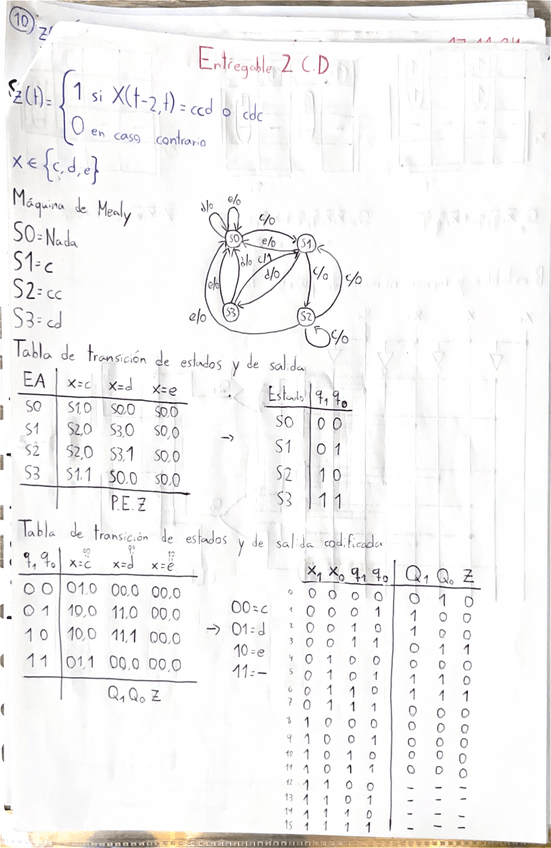 10
Entregable 2 C.D
Z(t)= { 1 si X(t-2,t)=ccd o cdc
0 en caso contrario
X ∈ {c,d,e}
Máquina de Mealy
S0=Nada
S1=c
S2=cc
S3=cd
d/0 e/0 c/0
S0 e/0 S1
d/0 c/1 d/0 c/0 c/0
e/0
S3 S2
e/0 c/0
Tabla de transición de estados y de salida
EA x=c x=d x=e
S0 S1,0 S0,0 S0,0
S1 S2,0 S3,0 S0,0
S2 S2,0 S3,1 S0,0
S3 S1,1 S0,0 S0,0
P.E. Z
→
Estado q1 q0
S0 0 0
S1 0 1
S2 1 0
S3 1 1
Tabla de transición de estados y de salida codificada
00 01 10
q1 q0 x=c x=d x=e
0 0 01,0 00,0 00,0
0 1 10,0 11,0 00,0
1 0 10,0 11,1 00,0
1 1 01,1 00,0 00,0
Q1 Q0 Z
→
00=c
01=d
10=e
11=-
X1 X0 q1 q0 Q1 Q0 Z
0 0 0 0 0 0 1 0
1 0 0 0 1 1 0 0
2 0 0 1 0 1 0 0
3 0 0 1 1 0 1 1
4 0 1 0 0 0 0 0
5 0 1 0 1 1 1 0
6 0 1 1 0 1 1 1
7 0 1 1 1 0 0 0
8 1 0 0 0 0 0 0
9 1 0 0 1 0 0 0
10 1 0 1 0 0 0 0
11 1 0 1 1 0 0 0
12 1 1 0 0 - - -
13 1 1 0 1 - - -
14 1 1 1 0 - - -
15 1 1 1 1 - - -